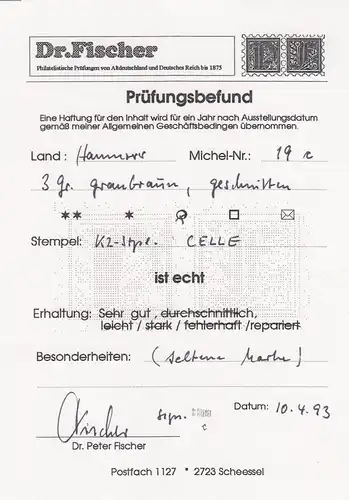 Dr.Fischer
Philatelistische Prüfungen von Altdeutschland und Deutsches Reich bis 1875
Prüfungsbefund
Eine Haftung für den Inhalt wird für ein Jahr nach Ausstellungsdatum
gemäß meiner Allgemeinen Geschäftsbedingen übernommen.
Land: Hannover Michel-Nr.: 19 c
3 Gr. graubraun, geschnitten
** *
Stempel: K2-Stpl. CELLE
ist echt
Erhaltung: Sehr gut, durchschnittlich,
leicht / stark / fehlerhaft / repariert
Besonderheiten: (seltene Marke)
Fischer Sign. c Datum: 10.4.93
Dr. Peter Fischer
Postfach 1127 * 2723 Scheessel